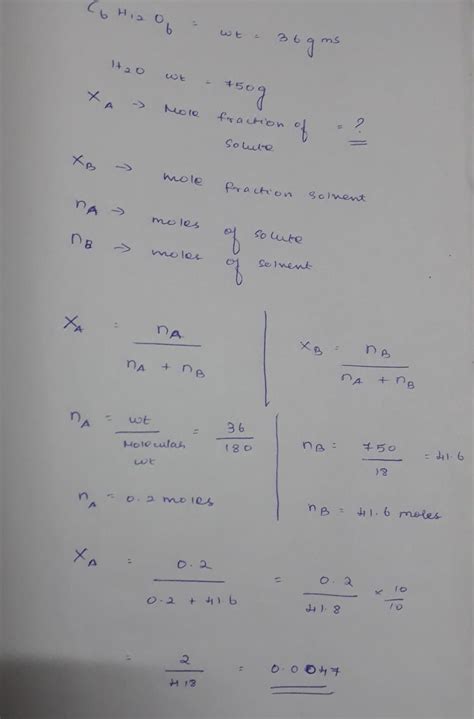 C6 H12 O6 = wt = 36 gms
H2O wt = 750g
XA → Mole fraction of solute = ?
XB → mole fraction solvent
nA → moles of solute
nB → moles of solvent
XA = nA / nA + nB
XB = nB / nA + nB
nA = wt / Molecular wt = 36 / 180
nB = 750 / 18 = 41.6
nA = 0.2 moles
nB = 41.6 moles
XA = 0.2 / 0.2 + 41.6 = 0.2 / 41.8 × 10 / 10
= 2 / 418 = 0.0047